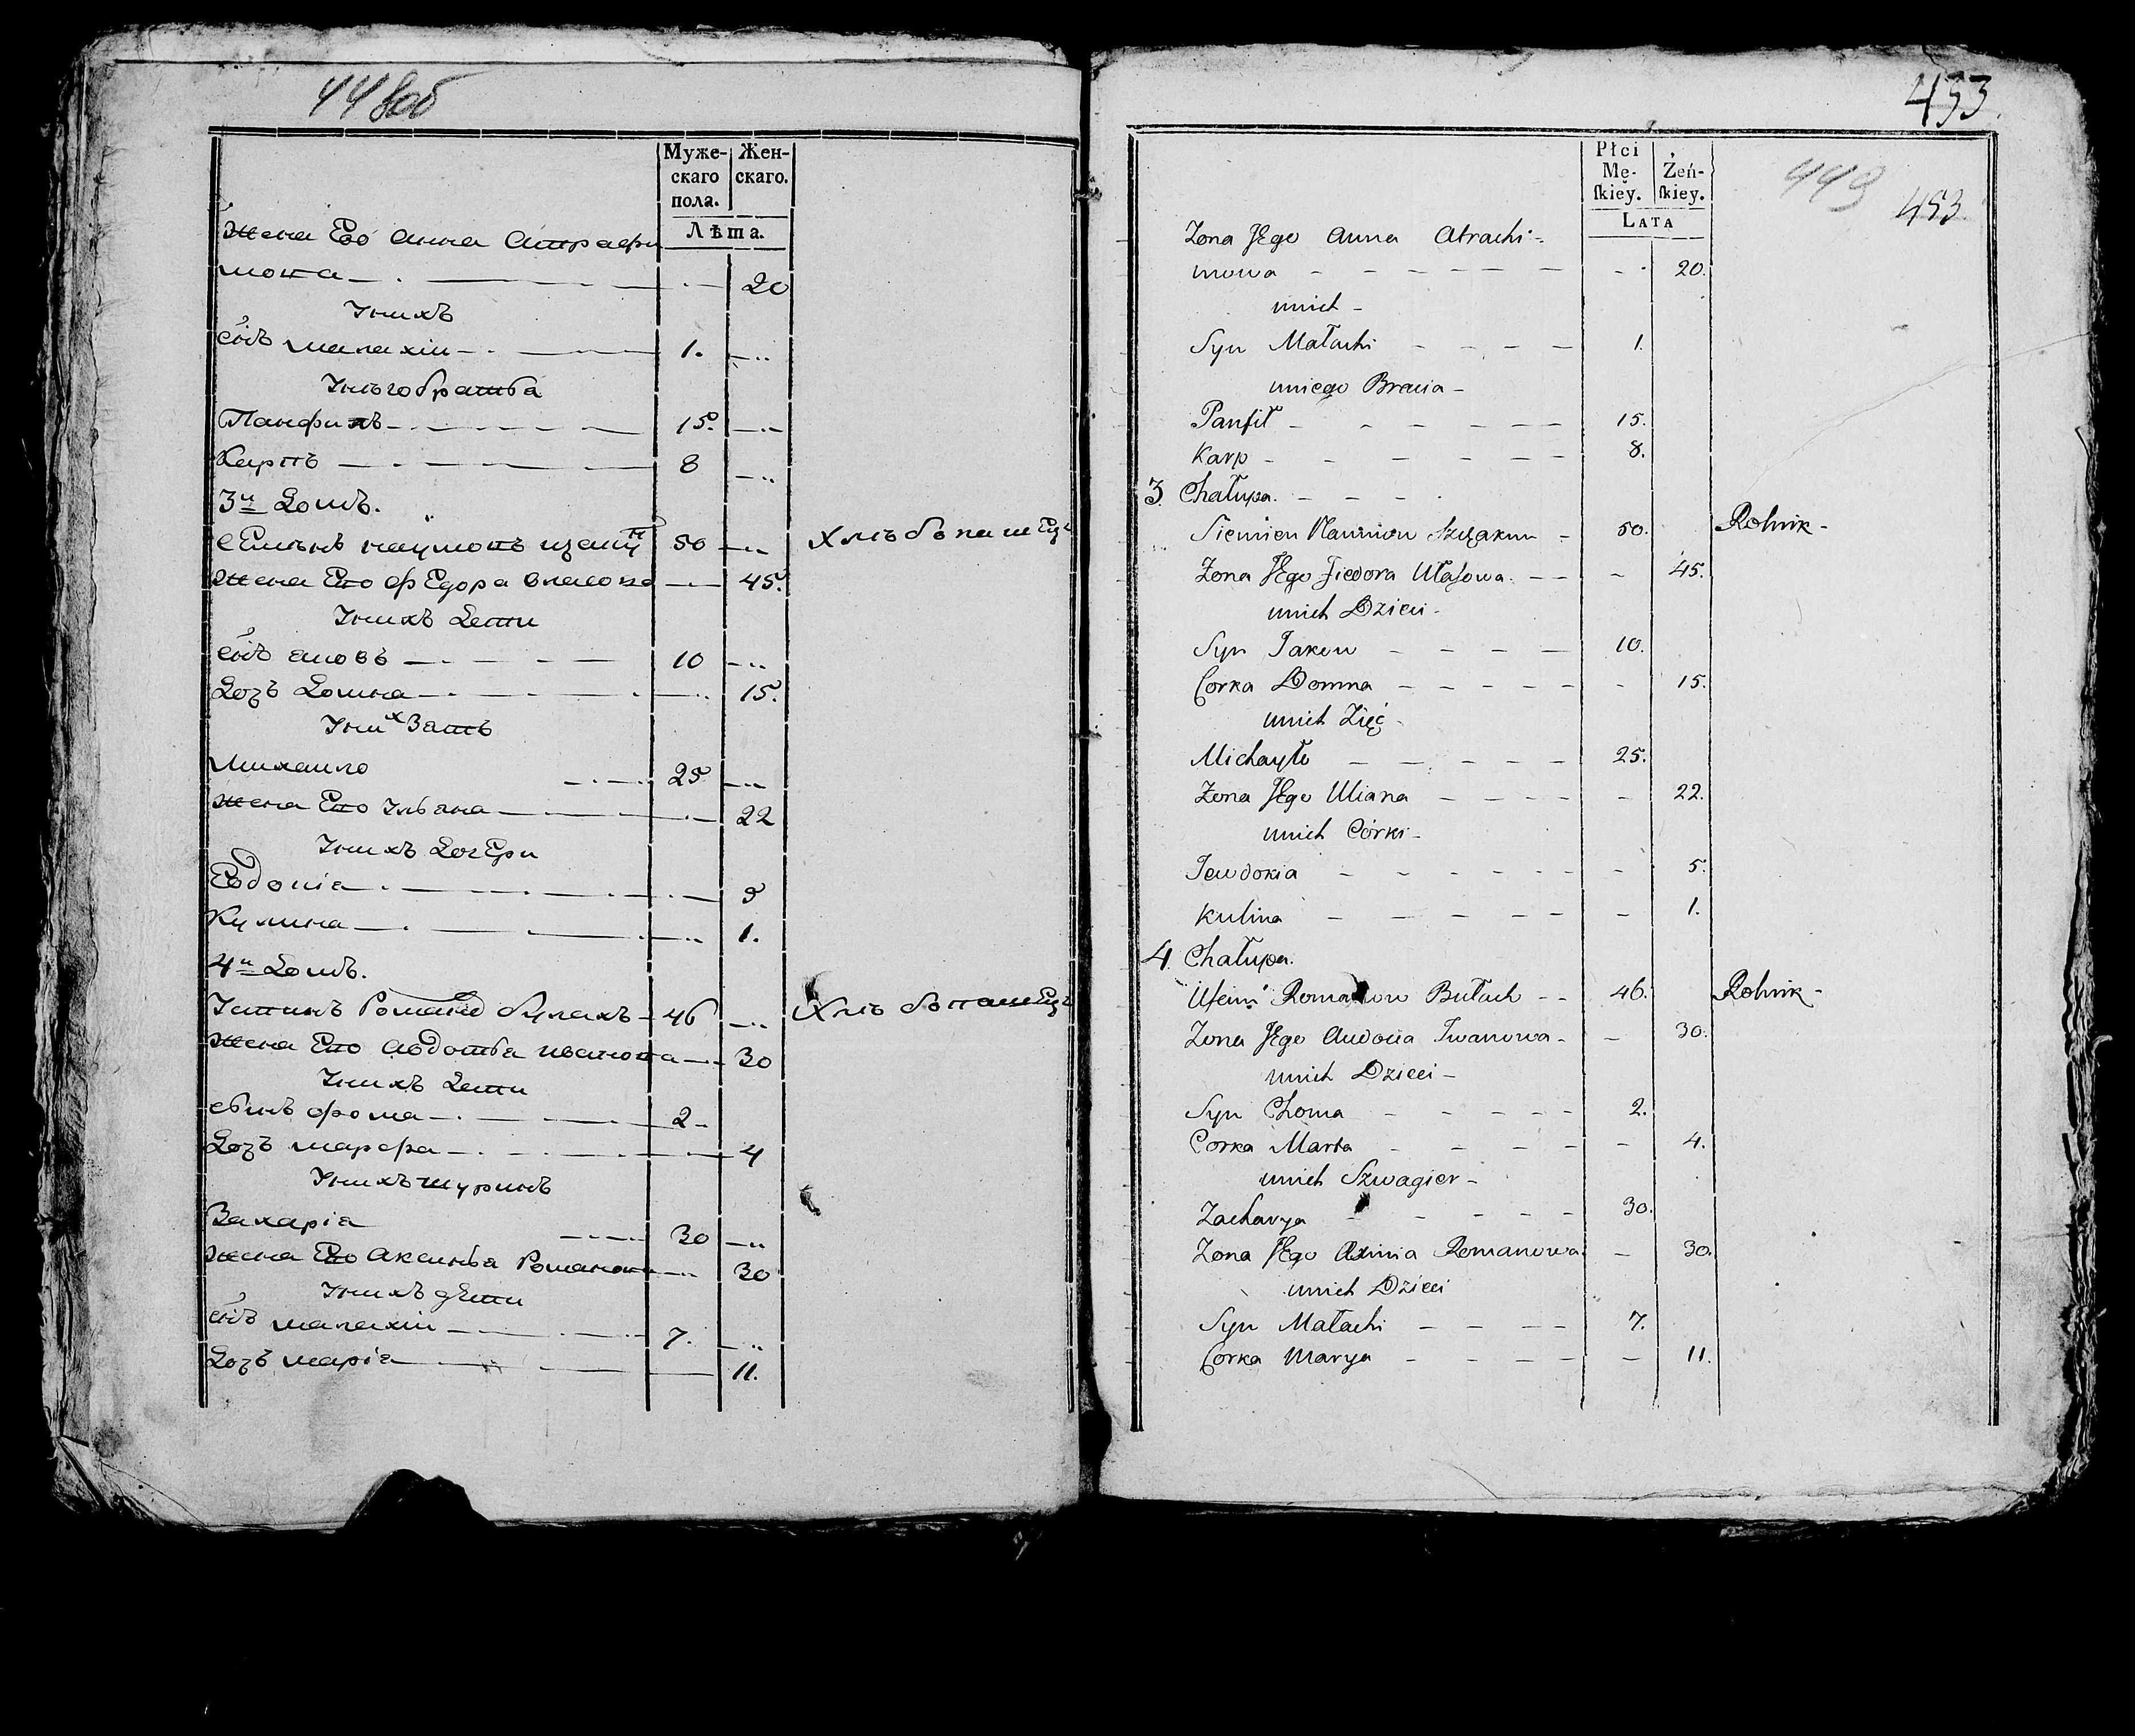 448об
Муже-
скаго
пола.
Жен-
скаго.
Лѣта.
жена Его анна атрафи
мова 20
Унихъ
снъ малахии 1.
Унего братьа
Панфилъ 15.
Карпъ 8
3и Домъ.
Жена Его фЕдора власова 45.
Унихъ Дети
снъ аковъ 10
Дочъ Домна 15.
Уних Зать
Михаило 25
жена Его Ульана 22
Унихъ ДочЕри
Евдокіа 5
Кулина 1.
4и Домъ.
Романов булахъ 46
жена Его авдотьа иванова 30
Унихъ Дети
сынъ фома 2
Дочъ марфа 4
Унихъ шуринъ
Захаріа 30
жена Его аксиньа Романова 30
Унихъ дЕти
снъ малахии 7.
Дочъ маріа 11.
433
443
453
Płci
Mę-
ſkiéy.
Żeń-
ſkiey.
LATA
Zona JEgo Anna Atrachi-
mowa 20.
unich
Syn Małachi 1.
uniego Bracia
Panfił 15.
Karp 8.
3 Chałupa.
Siemien Naumow 50. Rolnik
Zona JEgo Fiedora Ułasowa 45.
unich Dzieci
Syn Jakow 10.
Corka Domna 15.
unich Zięć
Michayło 25.
Zona JEgo Uliana 22.
unich Córki
Jewdokia 5.
Kulina 1.
4 Chałupa.
Romanow Bułach 46. Rolnik
Zona JEgo Awdocia Iwanowa 30.
unich Dzieci
Syn Choma 2.
Corka Marta 4.
unich Szwagier
Zacharya 30.
Zona JEgo Axinia Romanowa 30.
unich Dzieci
Syn Małachi 7.
Corka Marya 11.